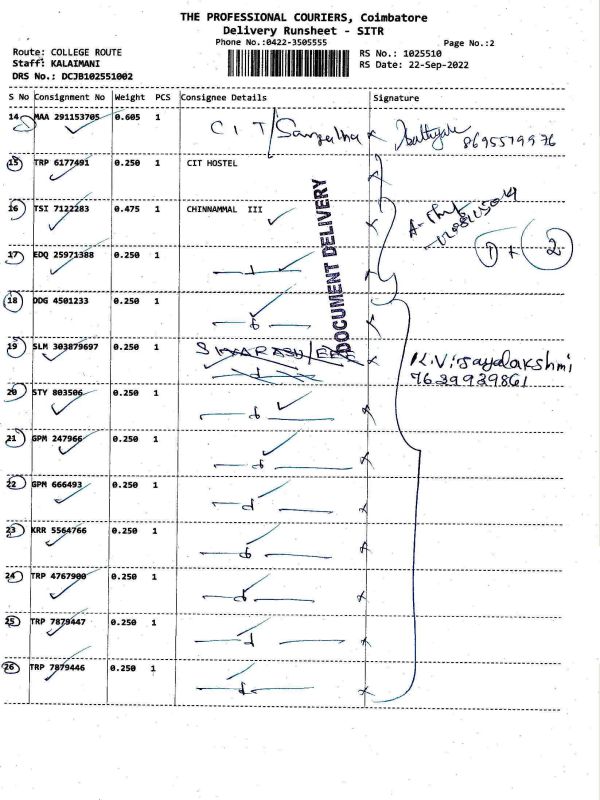 THE PROFESSIONAL COURIERS, Coimbatore
Delivery Runsheet - SITR
Phone No.:0422-3505555
Page No.:2
Route: COLLEGE ROUTE
RS No.: 1025510
Staff: KALAIMANI
RS Date: 22-Sep-2022
DRS No.: DCJB102551002
S No Consignment No Weight PCS Consignee Details Signature
14 MAA 291153705 0.605 1 CIT/ 8695579976
15 TRP 6177491 0.250 1 CIT HOSTEL
16 TSI 7122283 0.475 1 CHINNAMMAL III
1 + 2
17 EDQ 25971388 0.250 1
DOCUMENT DELIVERY
18 DDG 4501233 0.250 1
19 SLM 303879697 0.250 1 K.Vijayalakshmi
7639939861
20 STY 803506 0.250 1
21 GPM 247966 0.250 1
22 GPM 666493 0.250 1
23 KRR 5564766 0.250 1
24 TRP 4767900 0.250 1
25 TRP 7879447 0.250 1
26 TRP 7879446 0.250 1